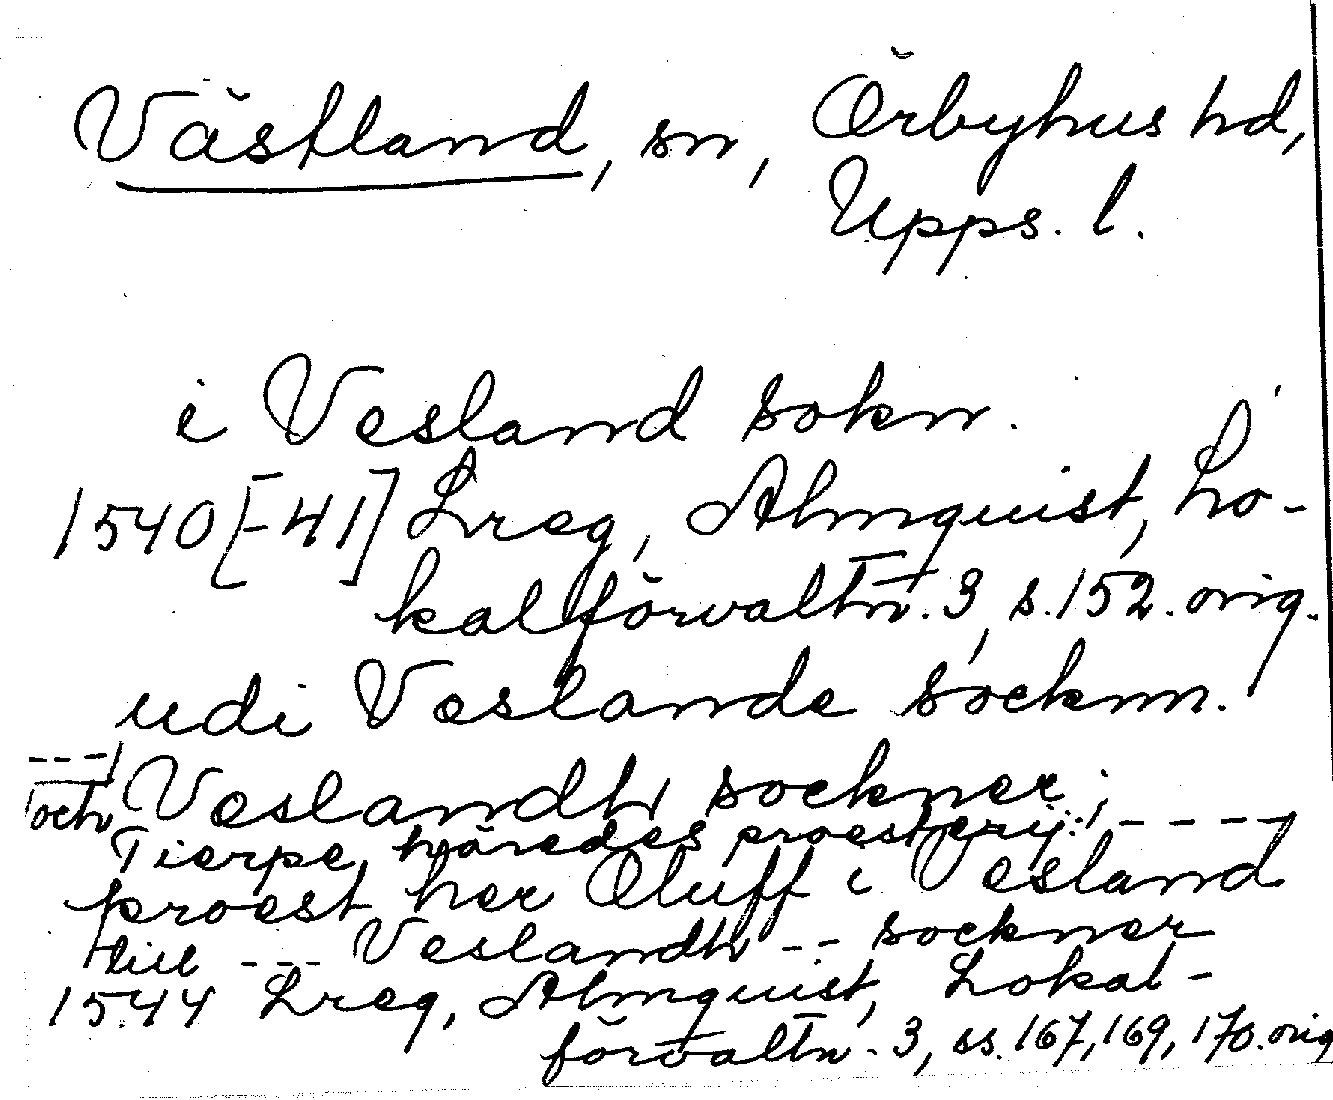 Västland, sn, Örbyhus hd,
Upps. l.
i Vesland sokn.
1540[-41] Lreg, Almquist, Lo-
kalförvaltn. 3, s. 152. orig.
udi Veslande socknn.
---/
och Veslandh sockner; ----
Tierpe häredes proesterij:
proest her Oluff i Vesland
till --- Veslandh -- sockner
1544 Lreg, Almquist, Lokal-
förvaltn. 3, ss. 167, 169, 170. orig